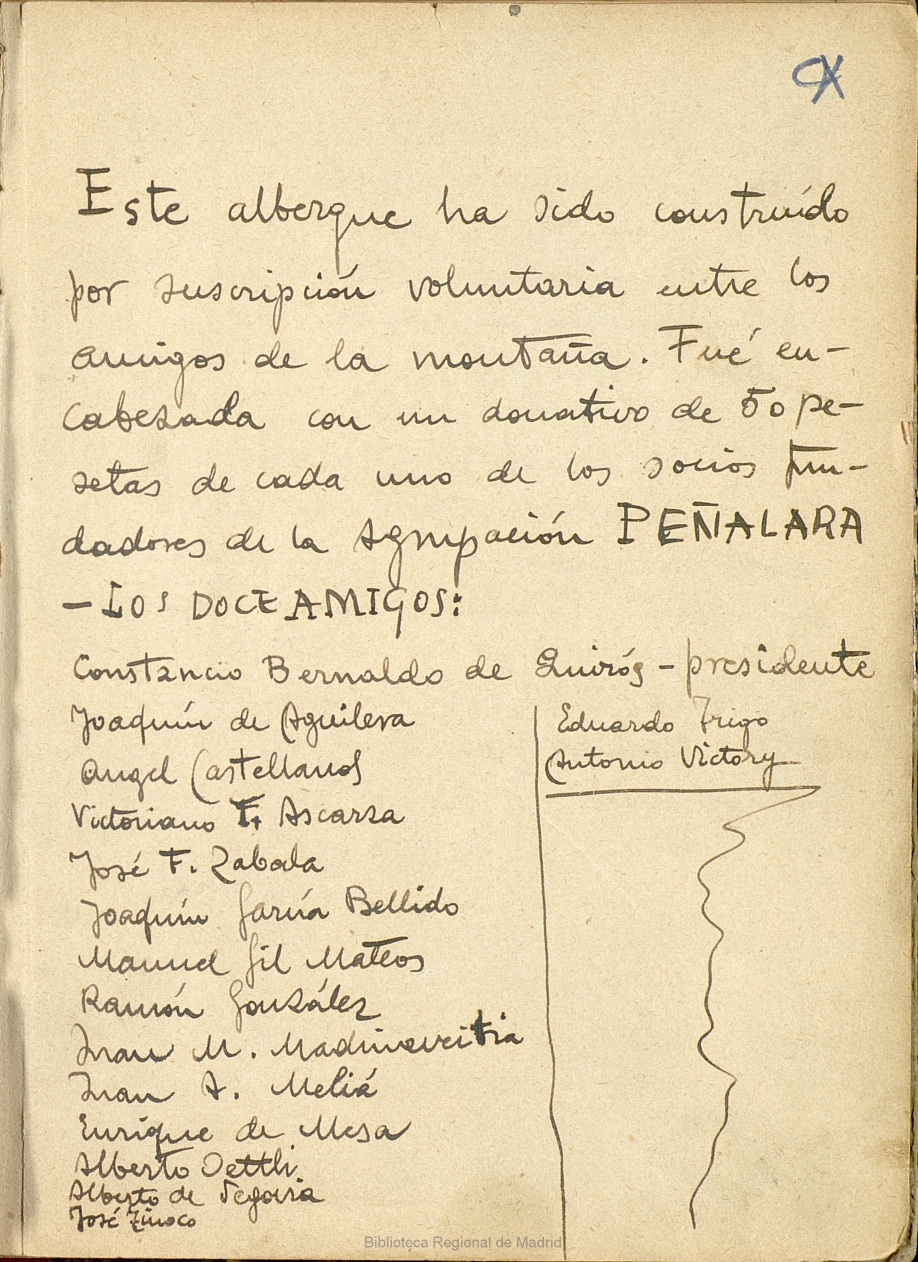 Este albergue ha sido construído
por suscripción voluntaria entre los
amigos de la montaña. Fué en-
cabezada con un donativo de 50 pe-
setas de cada uno de los socios fun-
dadores de la Agrupación PEÑALARA
– LOS DOCE AMIGOS:
Constancio Bernaldo de Quiróz – presidente
Joaquín de Aguilera
Angel Castellanos
Victoriano F. Ascarza
José F. Zabala
Joaquín García Bellido
Manuel Gil Mateos
Ramón González
Juan M. Madinaveitia
Juan A. Meliá
Enrique de Mesa
Alberto Oettli
Alberto de Segovia
José Tinoco
Eduardo Trigo
Antonio Victory
Biblioteca Regional de Madrid